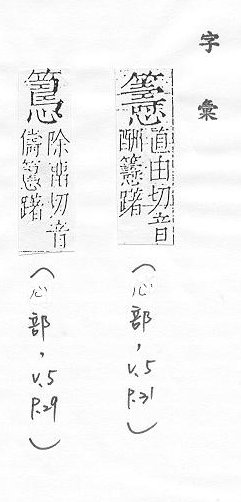 字彙
直由切音
酬躇
（心部，V.5
P.31）
除畱切音
儔躇
（心部，V.5
P.29）